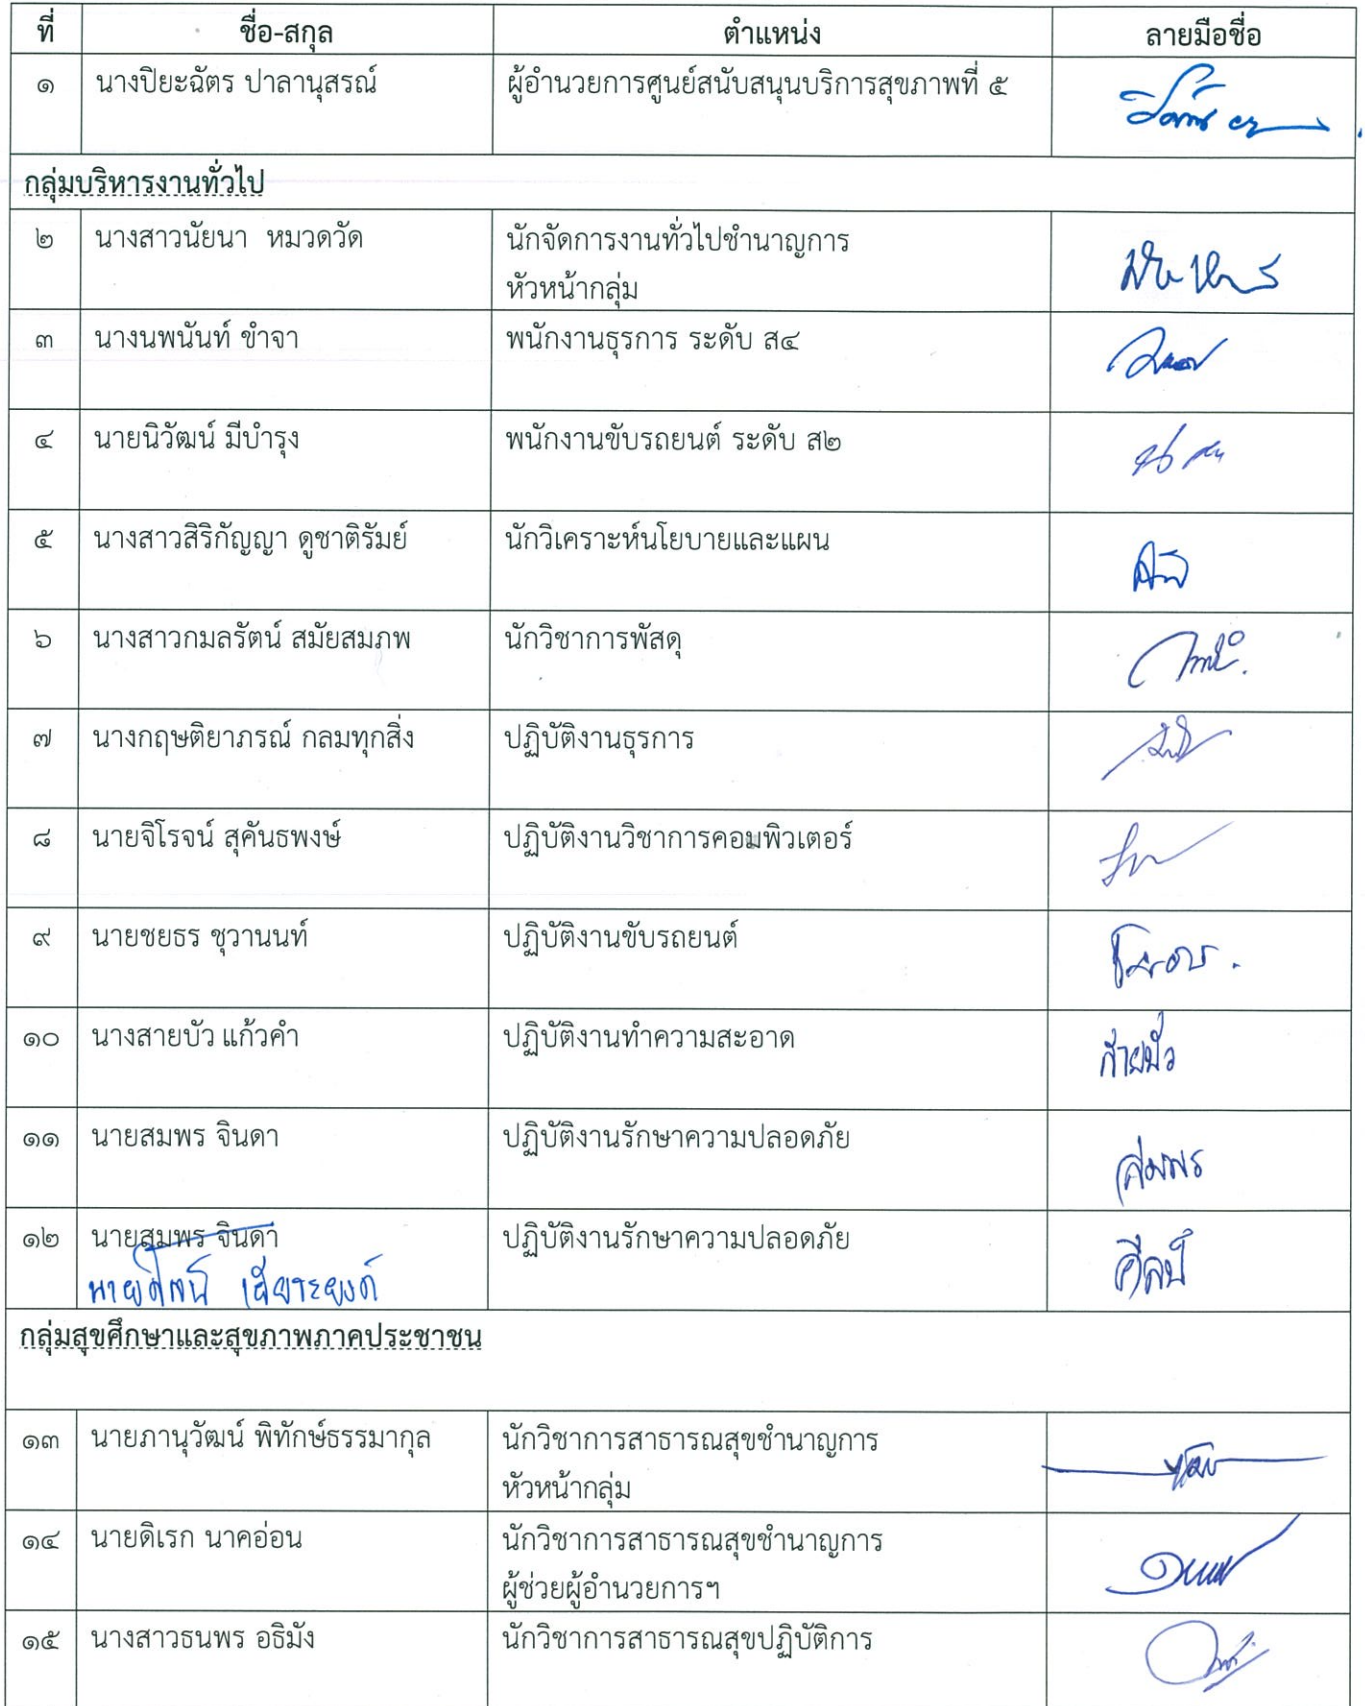 ที่ ชื่อ-สกุล ตำแหน่ง ลายมือชื่อ
๑ นางปิยะฉัตร ปาลานุสรณ์ ผู้อำนวยการศูนย์สนับสนุนบริการสุขภาพที่ ๕
กลุ่มบริหารงานทั่วไป
๒ นางสาวนัยนา หมวดวัด นักจัดการงานทั่วไปชำนาญการ
หัวหน้ากลุ่ม
๓ นางนพนันท์ ขำจา พนักงานธุรการ ระดับ ส๔
๔ นายนิวัฒน์ มีบำรุง พนักงานขับรถยนต์ ระดับ ส๒
๕ นางสาวสิริกัญญา ดูชาติรัมย์ นักวิเคราะห์นโยบายและแผน
๖ นางสาวกมลรัตน์ สมัยสมภพ นักวิชาการพัสดุ
๗ นางกฤษติยาภรณ์ กลมทุกสิ่ง ปฏิบัติงานธุรการ
๘ นายจิโรจน์ สุคันธพงษ์ ปฏิบัติงานวิชาการคอมพิวเตอร์
๙ นายชยธร ชุวานนท์ ปฏิบัติงานขับรถยนต์
๑๐ นางสายบัว แก้วคำ ปฏิบัติงานทำความสะอาด สายบัว
๑๑ นายสมพร จินดา ปฏิบัติงานรักษาความปลอดภัย สมพร
๑๒ นายสมพร จินดา ปฏิบัติงานรักษาความปลอดภัย ศิลป์
กลุ่มสุขศึกษาและสุขภาพภาคประชาชน
๑๓ นายภานุวัฒน์ พิทักษ์ธรรมากุล นักวิชาการสาธารณสุขชำนาญการ
หัวหน้ากลุ่ม
๑๔ นายดิเรก นาคอ่อน นักวิชาการสาธารณสุขชำนาญการ
ผู้ช่วยผู้อำนวยการฯ
๑๕ นางสาวธนพร อธิมัง นักวิชาการสาธารณสุขปฏิบัติการ